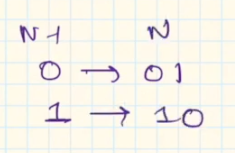 N-1 N
0 → 01
1 → 10